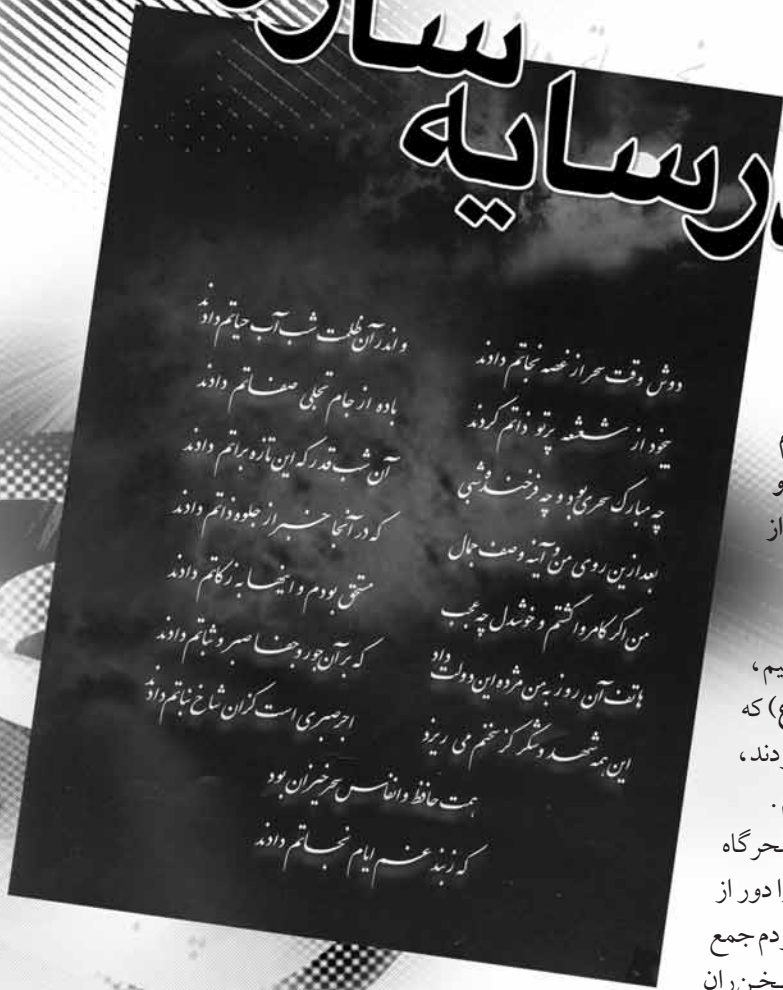 درسایه
دوش وقت سحر از غصه نجاتم دادند
و اندر آن ظلمت شب آب حیاتم دادند
بیخود از شعشعه پرتو ذاتم کردند
باده از جام تجلی صفاتم دادند
چه مبارک سحری بود و چه فرخنده شبی
آن شب قدر که این تازه براتم دادند
بعد ازین روی من و آینه وصف جمال
که در آنجا خبر از جلوه ذاتم دادند
من اگر کامروا گشتم و خوشدل چه عجب
مستحق بودم و اینها به زکاتم دادند
هاتف آن روز به من مژده این دولت داد
که بر آن جور و جفا صبر و ثباتم دادند
این همه شهد و شکر کز سخنم می ریزد
اجر صبری است کزان شاخ نباتم دادند
همت حافظ و انفاس سحرخیزان بود
که ز بند غم ایام نجاتم دادند
و
از
یم،
ع) که
دند،
حرگاه
ا دور از
ردم جمع
خن‌ران